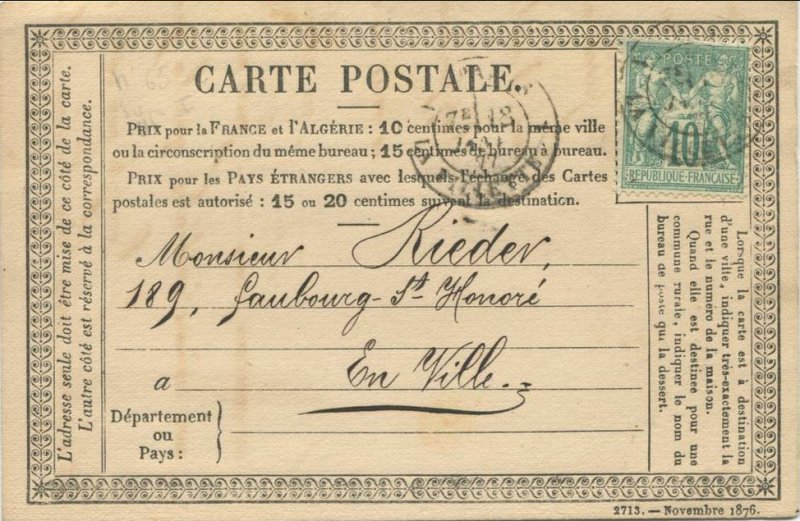 CARTE POSTALE.
PRIX pour la FRANCE et l'ALGÉRIE : 10 centimes pour la même ville
ou la circonscription du même bureau ; 15 centimes de bureau à bureau.
PRIX pour les PAYS ÉTRANGERS avec lesquels l'échange des Cartes
postales est autorisé : 15 ou 20 centimes suivant la destination.
POSTES
10
REPUBLIQUE FRANÇAISE
7E 18
Monsieur Rieder,
189, faubourg-St Honoré
a En Ville.
Département
ou
Pays :
L'adresse seule doit être mise de ce côté de la carte.
L'autre côté est réservé à la correspondance.
Lorsque la carte est à destination
d'une ville, indiquer très-exactement la
rue et le numéro de la maison.
Quand elle est destinée pour une
commune rurale, indiquer le nom du
bureau de poste qui la dessert.
2713. — Novembre 1876.